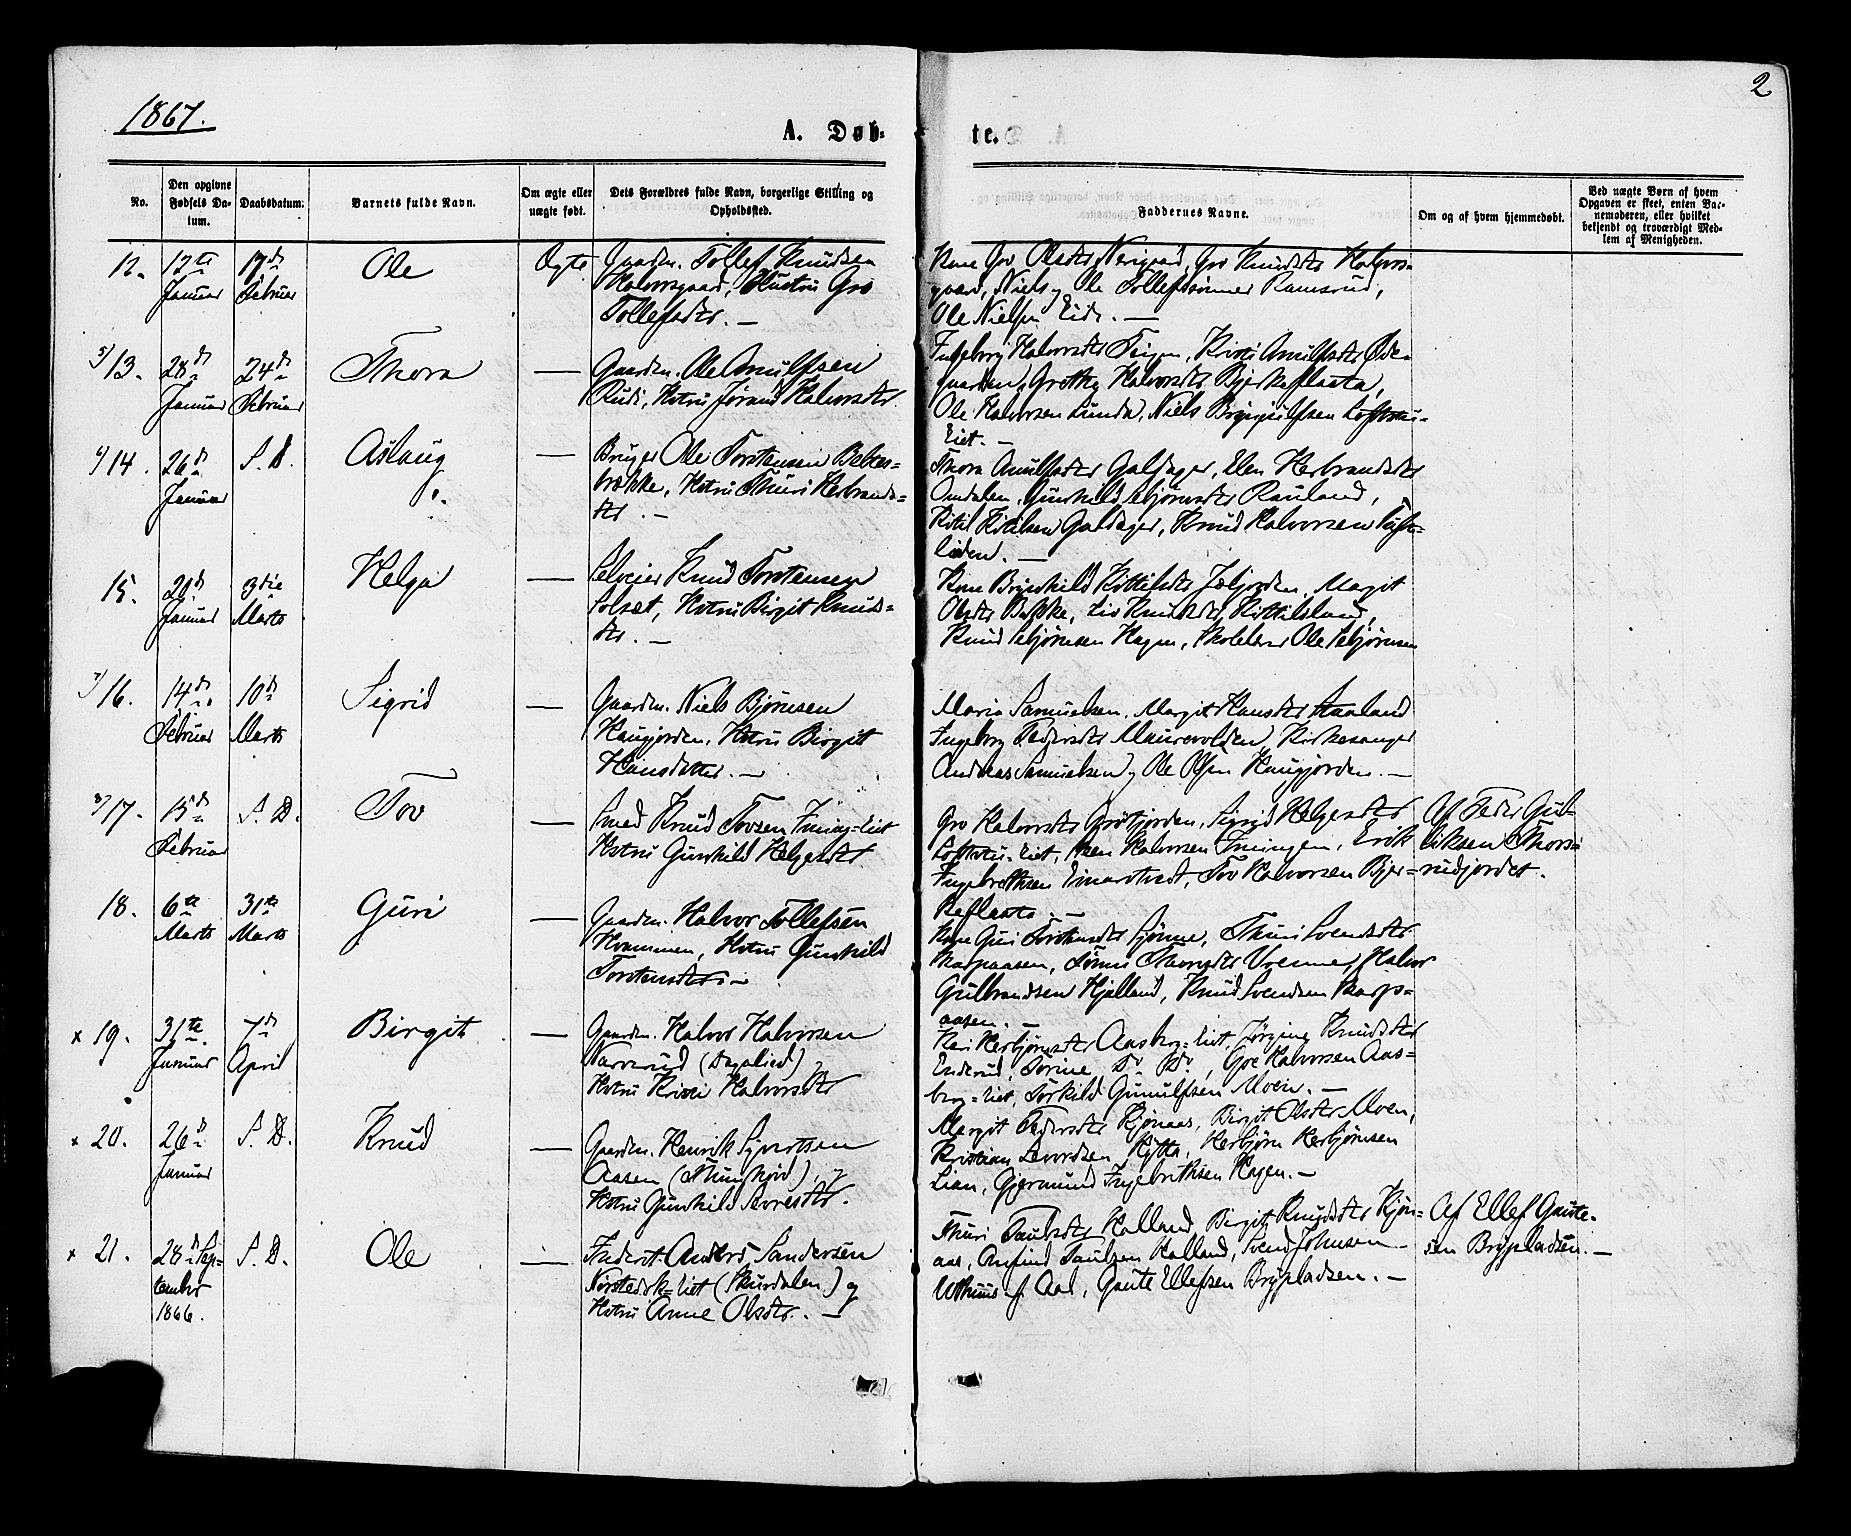 1867.
2
A. Døb-
te.
No.
Den opgivne Fødsels Da-tum.
Daabsdatum.
Barnets fulde Navn.
Om ægte eller uægte født.
Dets Forældres fulde Navn, borgerlige Stilling og Opholdssted.
Faddernes Navne.
Om og af hvem hjemmedøbt.
Ved uægte Børn af hvem Opgaven er skeet, enten Bar-nemoderen, eller hvilket bekjendt og troværdigt Med-lem af Menigheden.
12. 12te Januar 17de Februar Ole Ægte
Gaardm. Tollef Knudsen
Halvorsgaard, Hustru Gro
Tollefsdtr. —
Kone Gro Olsdtr Nerigaard, Gro Knudsdtr Halvors-
gaard, Niels og Ole Tollefssønner Ramsrud,
Ole Nielsen Eide. —
5/13. 28de Januar 24de Februar Thora —
Gaardm. Ole Arnulfsen
Rudi, Hstru Jørand Halvorsdtr
Ingeborg Halvorsdtr Teigen, Kristi Arnulfsdtr Øde-
gaarden, Grethe Halvorsdtr Bjerkeflaata,
Ole Halvorsen Lunda, Niels Brynjulfsen Loftstu-
Eiet. —
14. 26de Januar S. D. Aslaug —
Bruger Ole Torstensen Bekke-
brække, Hstru Thuri Herbrands-
dtr. —
Thora Arnulfsdtr Galdager, Elen Herbrandsdtr
Omdalen, Gunhild Asbjørnsdtr Rauland,
Kitil Kitilsen Galdager, Knud Halvorsen
lieden. —
15. Januar 3die Marts Helga —
Selveier Knud Torstensen
Solsæt, Hstru Birgit Knuds-
dtr. —
Kone Brynhild Kittilsdtr Jøljorden, Margit
Olsdtr Bække, Liv Knudsdtr Kittilsland,
Knud Asbjørnsen Hagen, Skolelærer Ole Asbjørnsen
7/16. 14de Februar 10de Marts Sigrid —
Gaardm. Niels Bjørnsen
Haugjorden, Hstru Birgit
Hansdatter. —
Maria Samuelsen, Margit Hansdtr Aaaland
Ingeborg Pedersdtr Maurevolden, Kirkesanger
Andreas Samuelsen og Ole Olsen Haugjorden. —
8/17. 15de Februar S. D. Tov —
Smed Knud Tovsen Fruing-Eiet
Hstru Gunhild Helgesdtr
Gro Halvorsdtr Grøtjorden, Sigrid Helgesdtr
Loftstu-Eiet, Iven Halvorsen Fruingen, Erik
Ingebrethsen Einarstvedt, Tov Halvorsen Bjer-
keflaata. —
Af Peder Gul-
liksen Thors-
rudjordet.
18. 6te Marts 31te Marts Guri —
Gaardm. Halvor Tollefsen
Kvammen, Hstru Gunhild
Torstensdtr. —
Kone Guri Torstensdtr Sjønne, Thuri Svendsdtr
Karpaasen, Tønne Thoresdtr Vrenne, Halvor
Gulbrandsen Hjalland, Knud Svendsen Karps-
aasen. —
x 19. 31te Januar 7de April Birgit —
Gaardm. Halvor Halvorsen
Narverud (Dagalied) og
Hstru Kristi Halvorsdtr
Kari Herbjørnsdtr Aasberg-Eiet, Jørgine Knudsdtr
Enderud, Torine Do Do, Gro Halvorsen Aas-
berg-Eiet, Torkild Gunulfsen Moen. —
x 20. 26de Januar S. D. Knud —
Gaardm. Henrik Syvertsen
Aasen (Thunhovd) og
Hstru Gunhild Sevresdtr.
Margit Pedersdtr Kjønaas, Birgit Olsdtr Moen,
Kristian Levordsen Hytta, Herbjørn Herbjørnsen
Lian, Gjermund Ingebrethsen Hagen. —
x 21. 28de Sep-tember 1866. S. D. Ole —
Inderst Anders Sandersen
Norstedsk-Eiet (Skurdalen) og
Hstru Anne Olsdtr. —
Thuri Paulsdtr Halland, Birgit Knudsdtr Kjøn-
aas, Arnfind Paulsen Halland, Svend Johnsen
Uthuus f. Aal, Gaute Ellefsen Brypladsen. —
Af Ellef Gaute-
sen Brypladsen. —